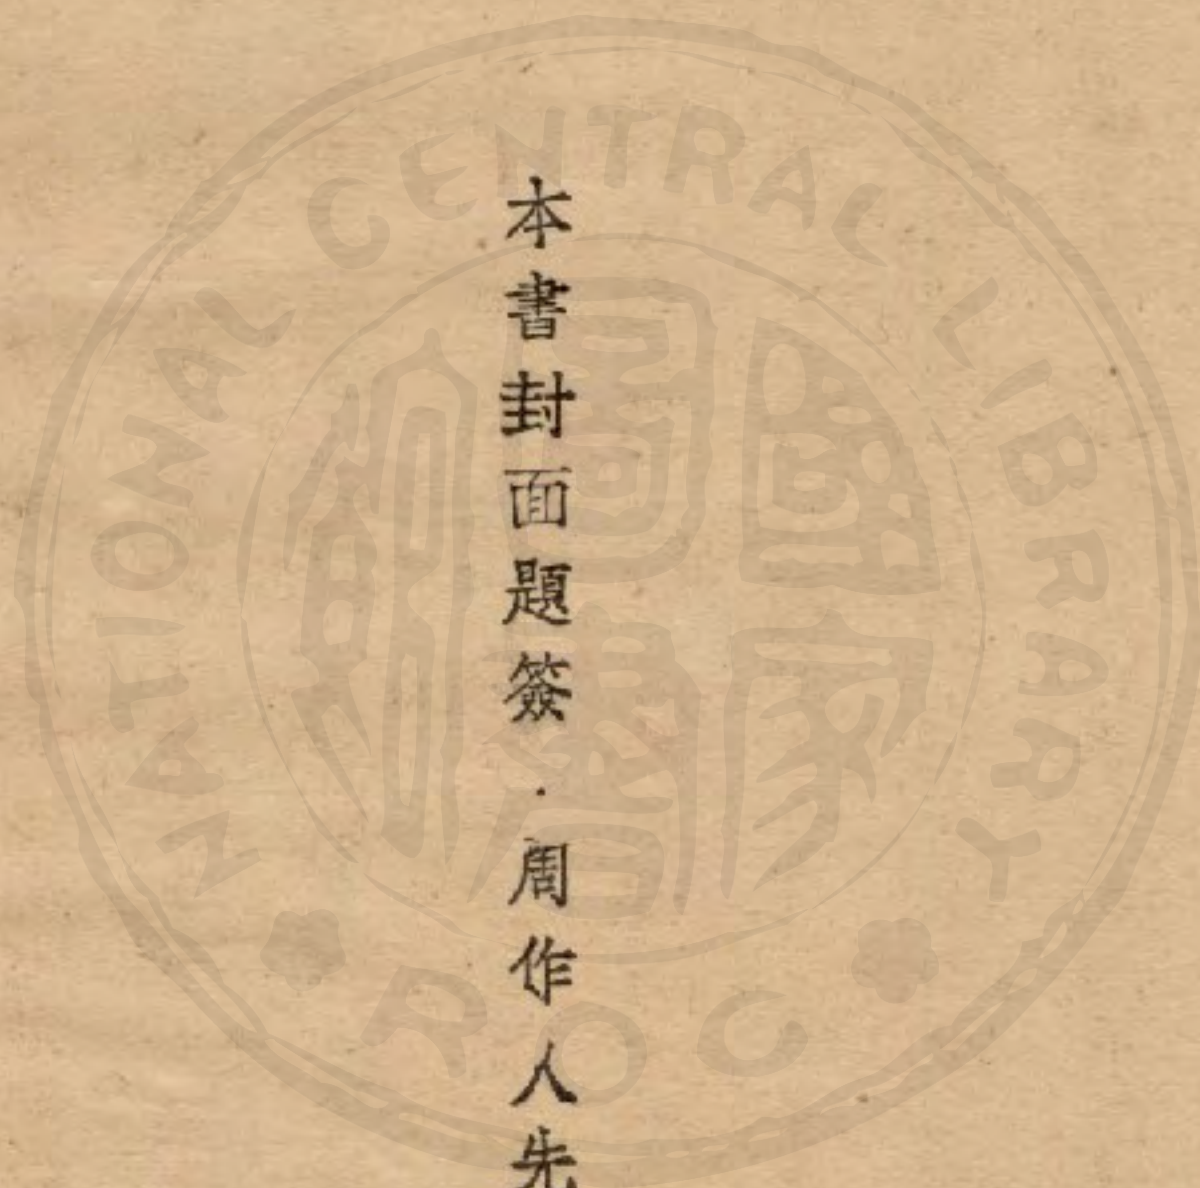 本書封面題簽·周作人先
NATIONAL CENTRAL LIBRARY
ROC
國家圖書館